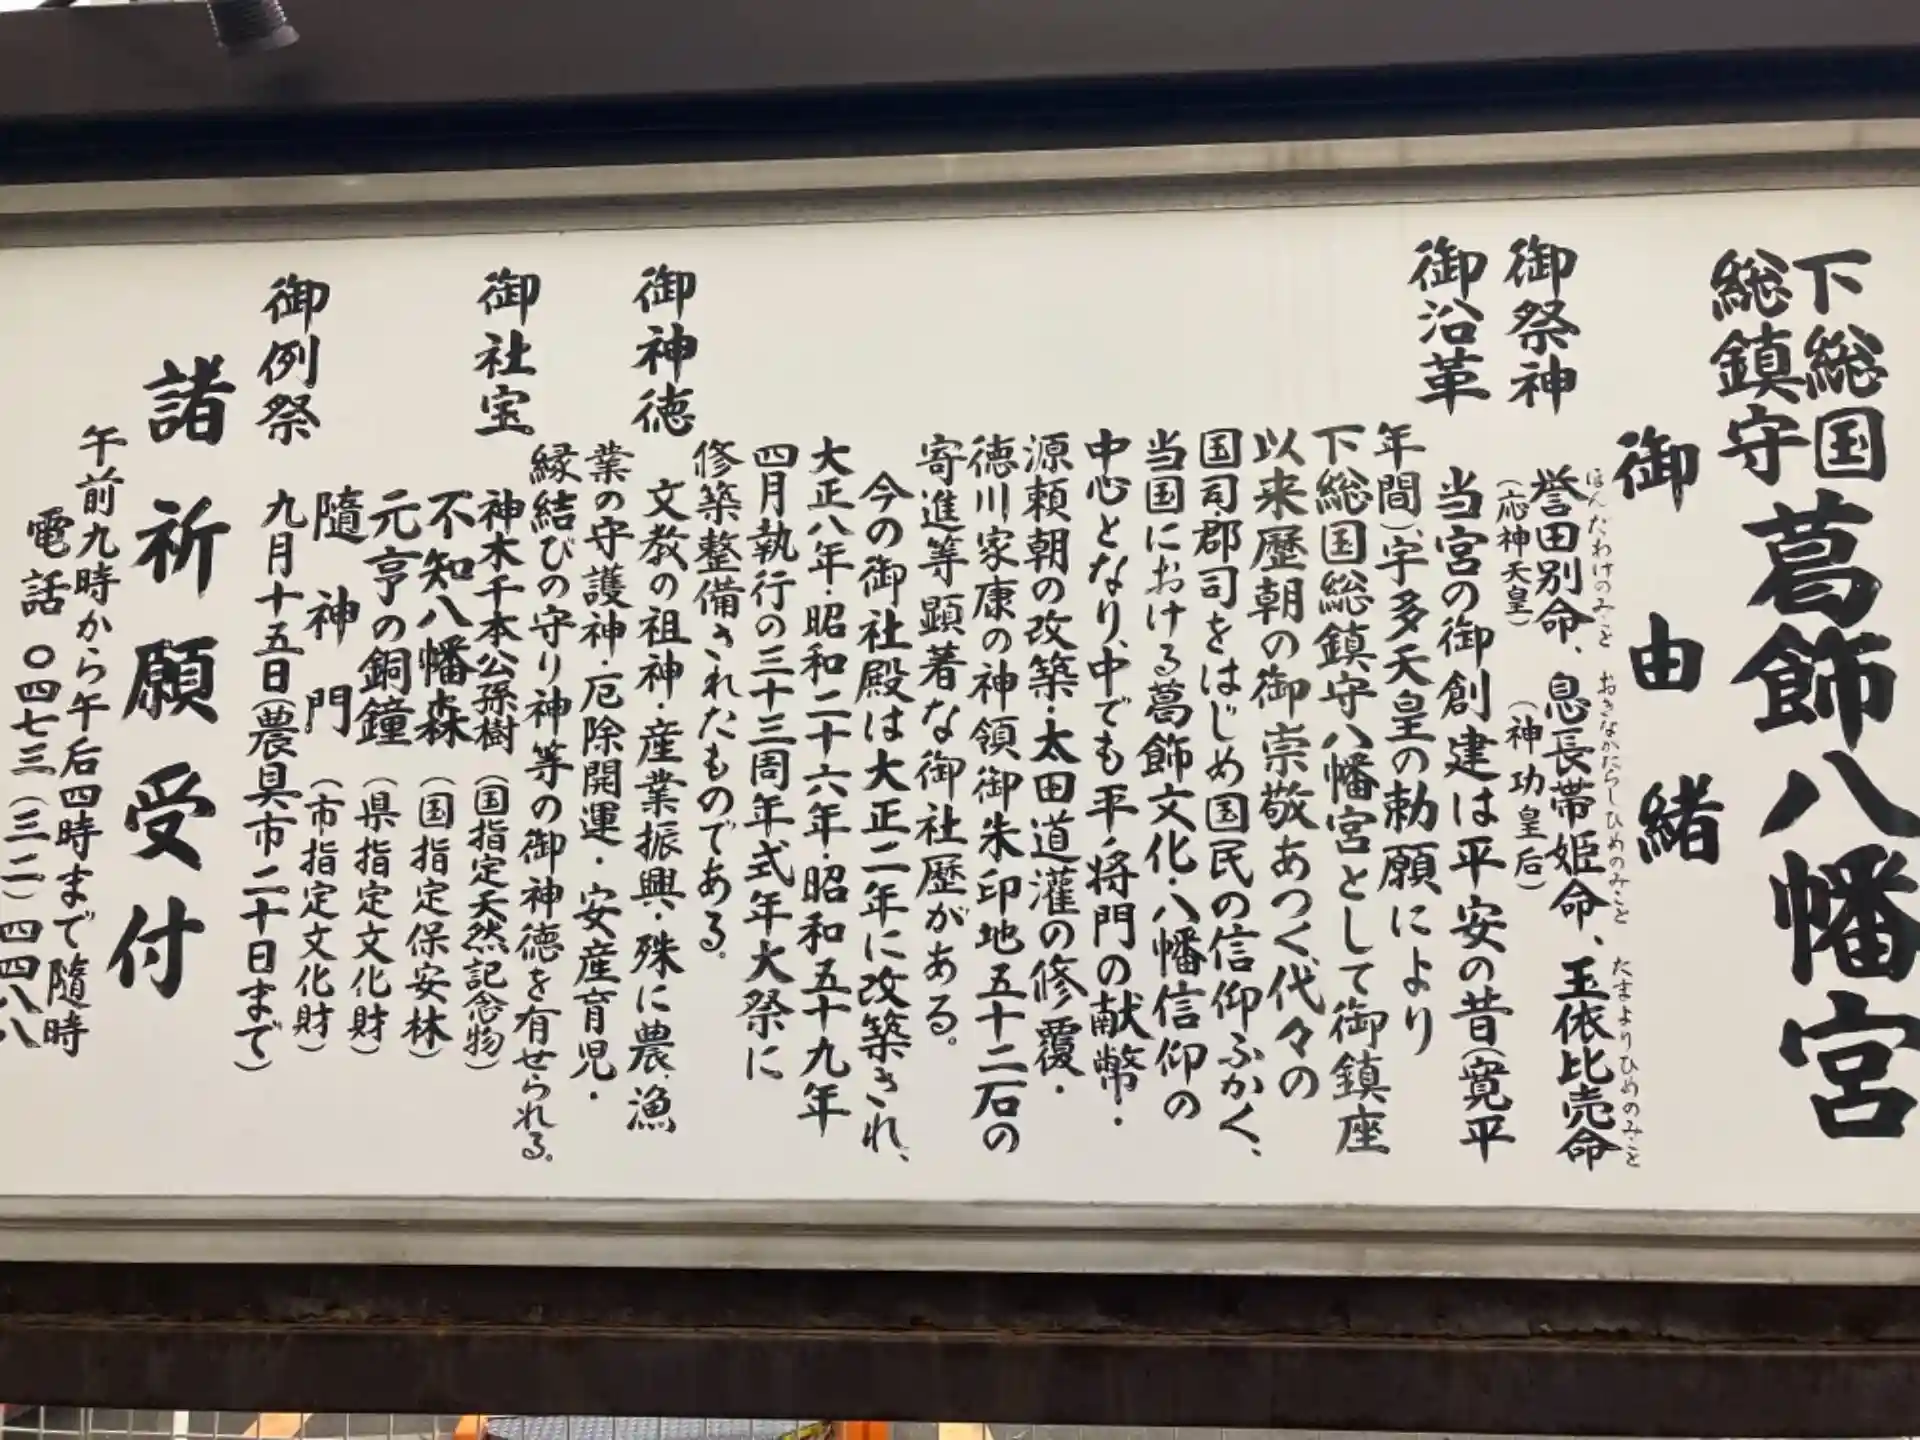 下総国
総鎮守
葛飾八幡宮
御由緒
御祭神
ほんだわけのみこと おきながたらしひめのみこと たまよりひめのみこと
誉田別命、息長帯姫命、玉依比売命
（応神天皇）（神功皇后）
御沿革
当宮の御創建は平安の昔（寛平
年間）、宇多天皇の勅願により
下総国総鎮守八幡宮として御鎮座
以来歴朝の御崇敬あつく、代々の
国司・郡司をはじめ国民の信仰ふかく、
当国における葛飾文化・八幡信仰の
中心となり、中でも平ノ将門の献幣・
源頼朝の改築・太田道灌の修覆・
徳川家康の神領御朱印地五十二石の
寄進等顕著な御社歴がある。
今の御社殿は大正二年に改築され、
大正八年・昭和二十六年・昭和五十九年
四月執行の三十三周年式年大祭に
修築整備されたものである。
御神徳
文教の祖神・産業振興・殊に農・漁
業の守護神・厄除開運・安産育児・
縁結びの守り神等の御神徳を有せられる。
御社宝
神木千本公孫樹（国指定天然記念物）
不知八幡森（国指定保安林）
元亨の銅鐘（県指定文化財）
隨神門（市指定文化財）
御例祭
九月十五日（農具市二十日まで）
諸祈願受付
午前九時から午后四時まで隨時
電話 〇四七三（三二）四四八八